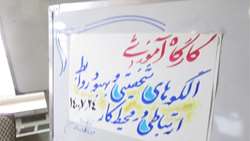 کارگاه آموزشی
الگوهای شخصیتی و بهبود روابط
ارتباطی در محیط کار
۱۴۰۰/۷/۲۴